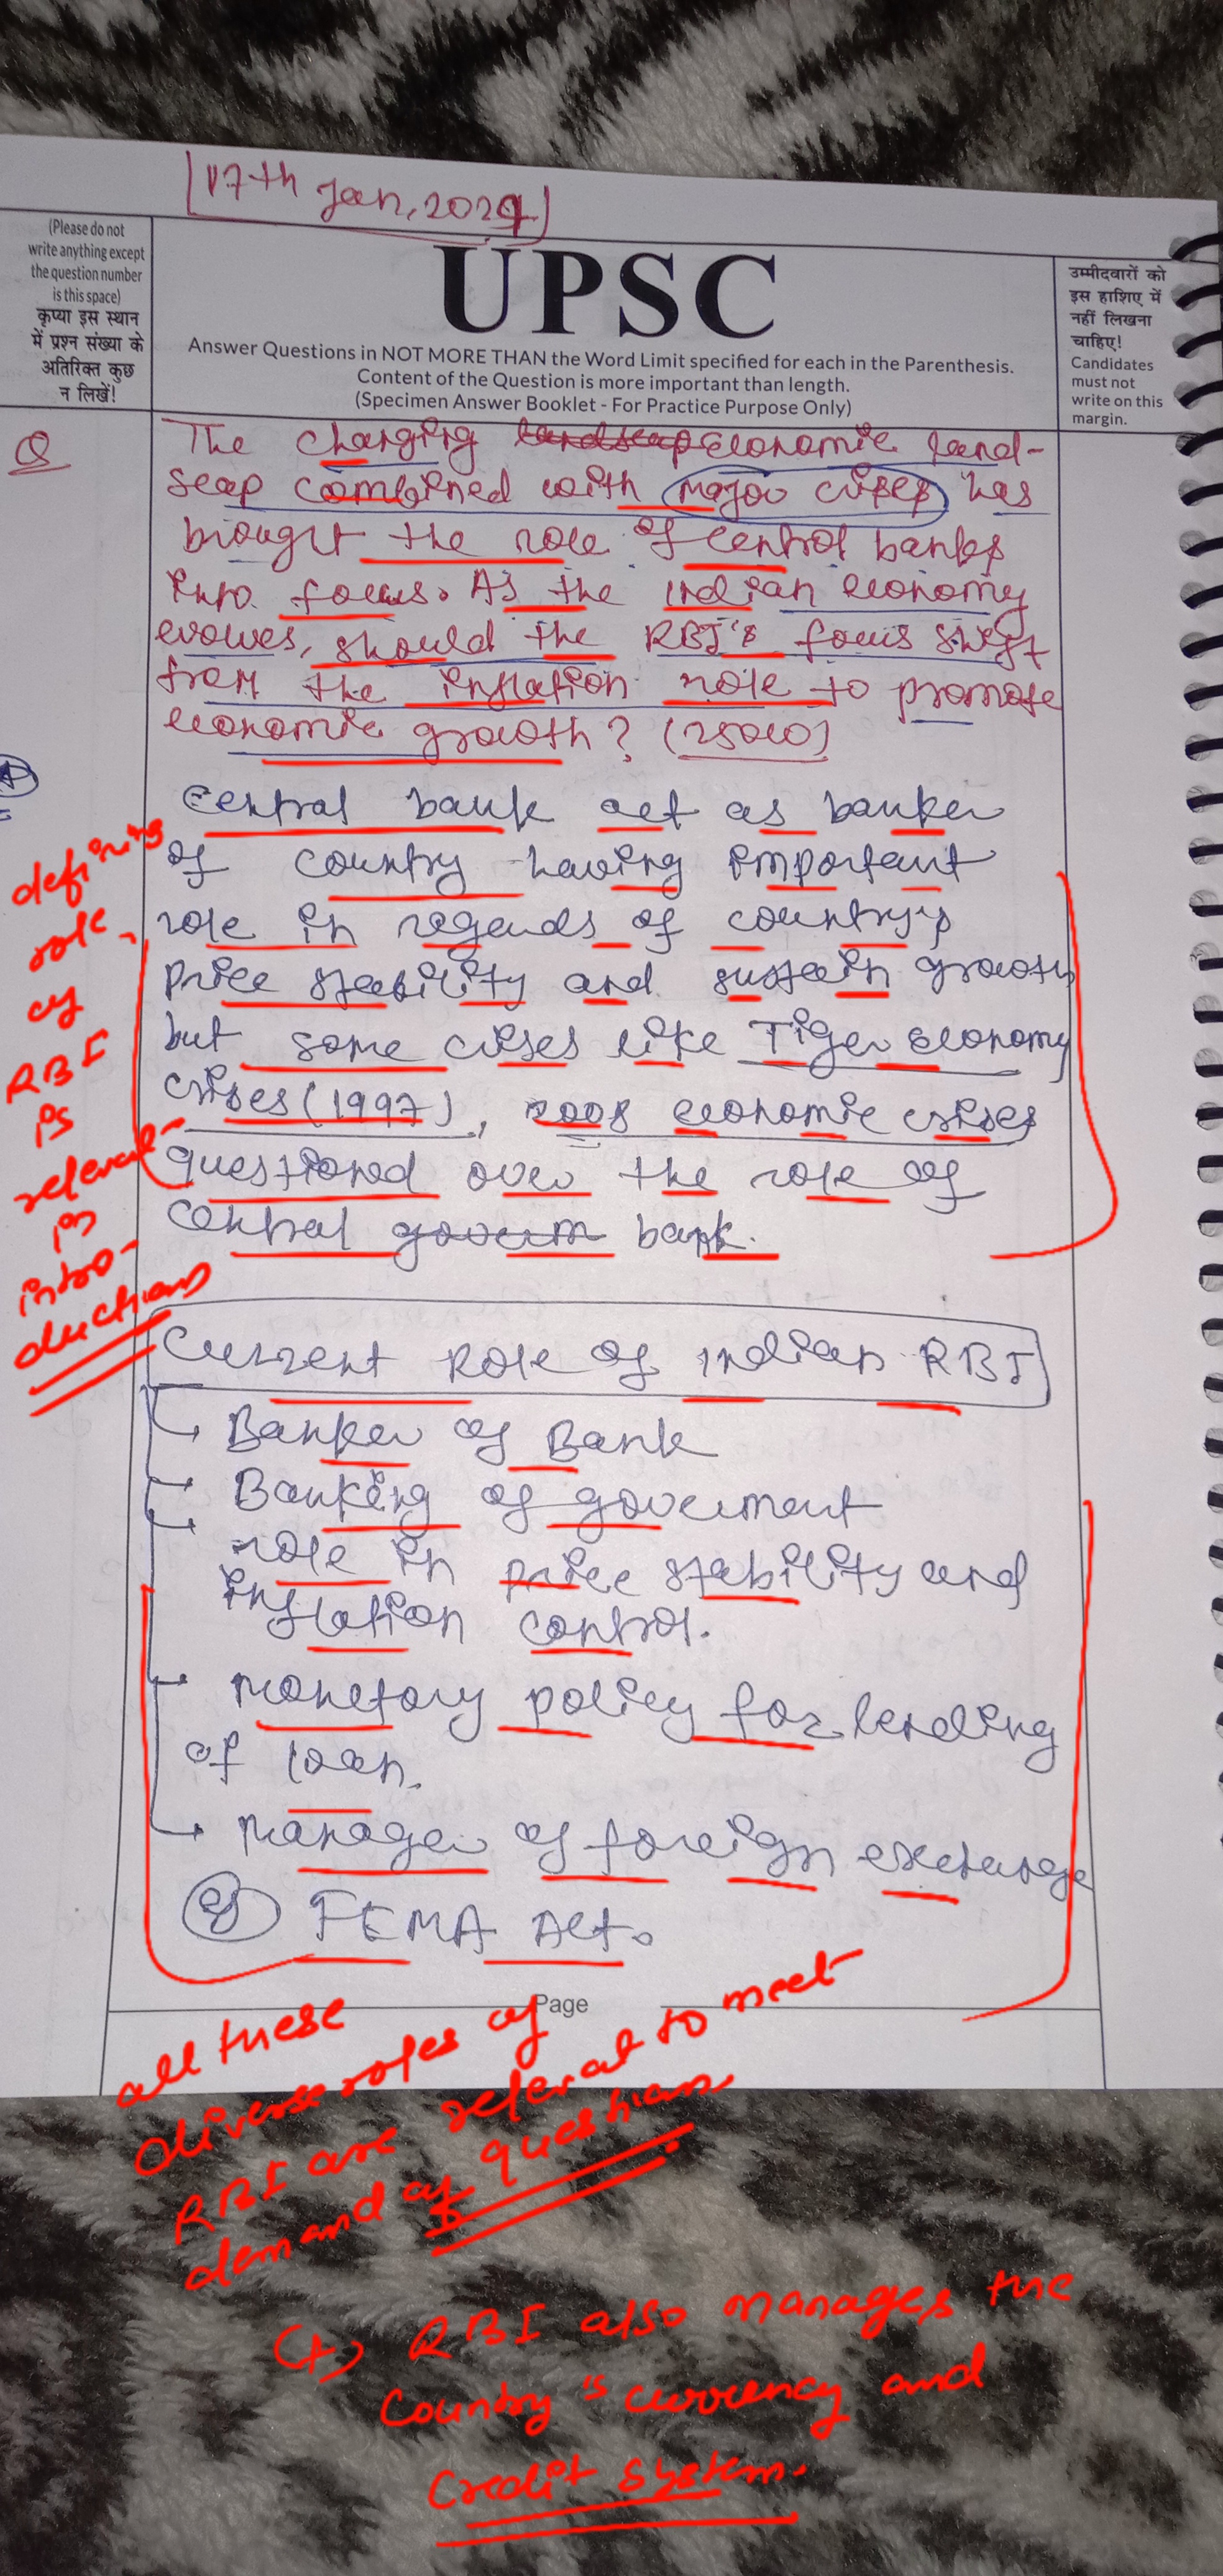 [17th Jan, 2024]
(Please do not
write anything except
the question number
is this space)
कृप्या इस स्थान
में प्रश्न संख्या के
अतिरिक्त कुछ
न लिखें!
UPSC
Answer Questions in NOT MORE THAN the Word Limit specified for each in the Parenthesis.
Content of the Question is more important than length.
(Specimen Answer Booklet - For Practice Purpose Only)
उम्मीदवारों को
इस हाशिए में
नहीं लिखना
चाहिए!
Candidates
must not
write on this
margin.
Q
The changing landscap economic land-
scap combined with major crises has
brought the role of central banks
into focus. As the indian economy
evolves, should the RBI's focus shift
from the inflation role to promote
economic growth? (250w)
Central bank act as banker
of country having important
role in regards of country's
price stability and sustain growth
but some crises like Tiger economy
crises (1997), 2008 economic crises
questioned over the role of
central goverm bank.
defining
role
of
RBI
is
relevat
in
intro-
duction
Current Role of indian RBI
Banker of Bank
Banking of goverment
role in price stability and
inflation control.
monetory policy for lending
of loan.
manager of foreign exchange
eg FEMA Act.
Page
all these
diverse roles of
RBI are relevat to meet
demand of question.
(+) RBI also manages the
Country's currency and
credit system.